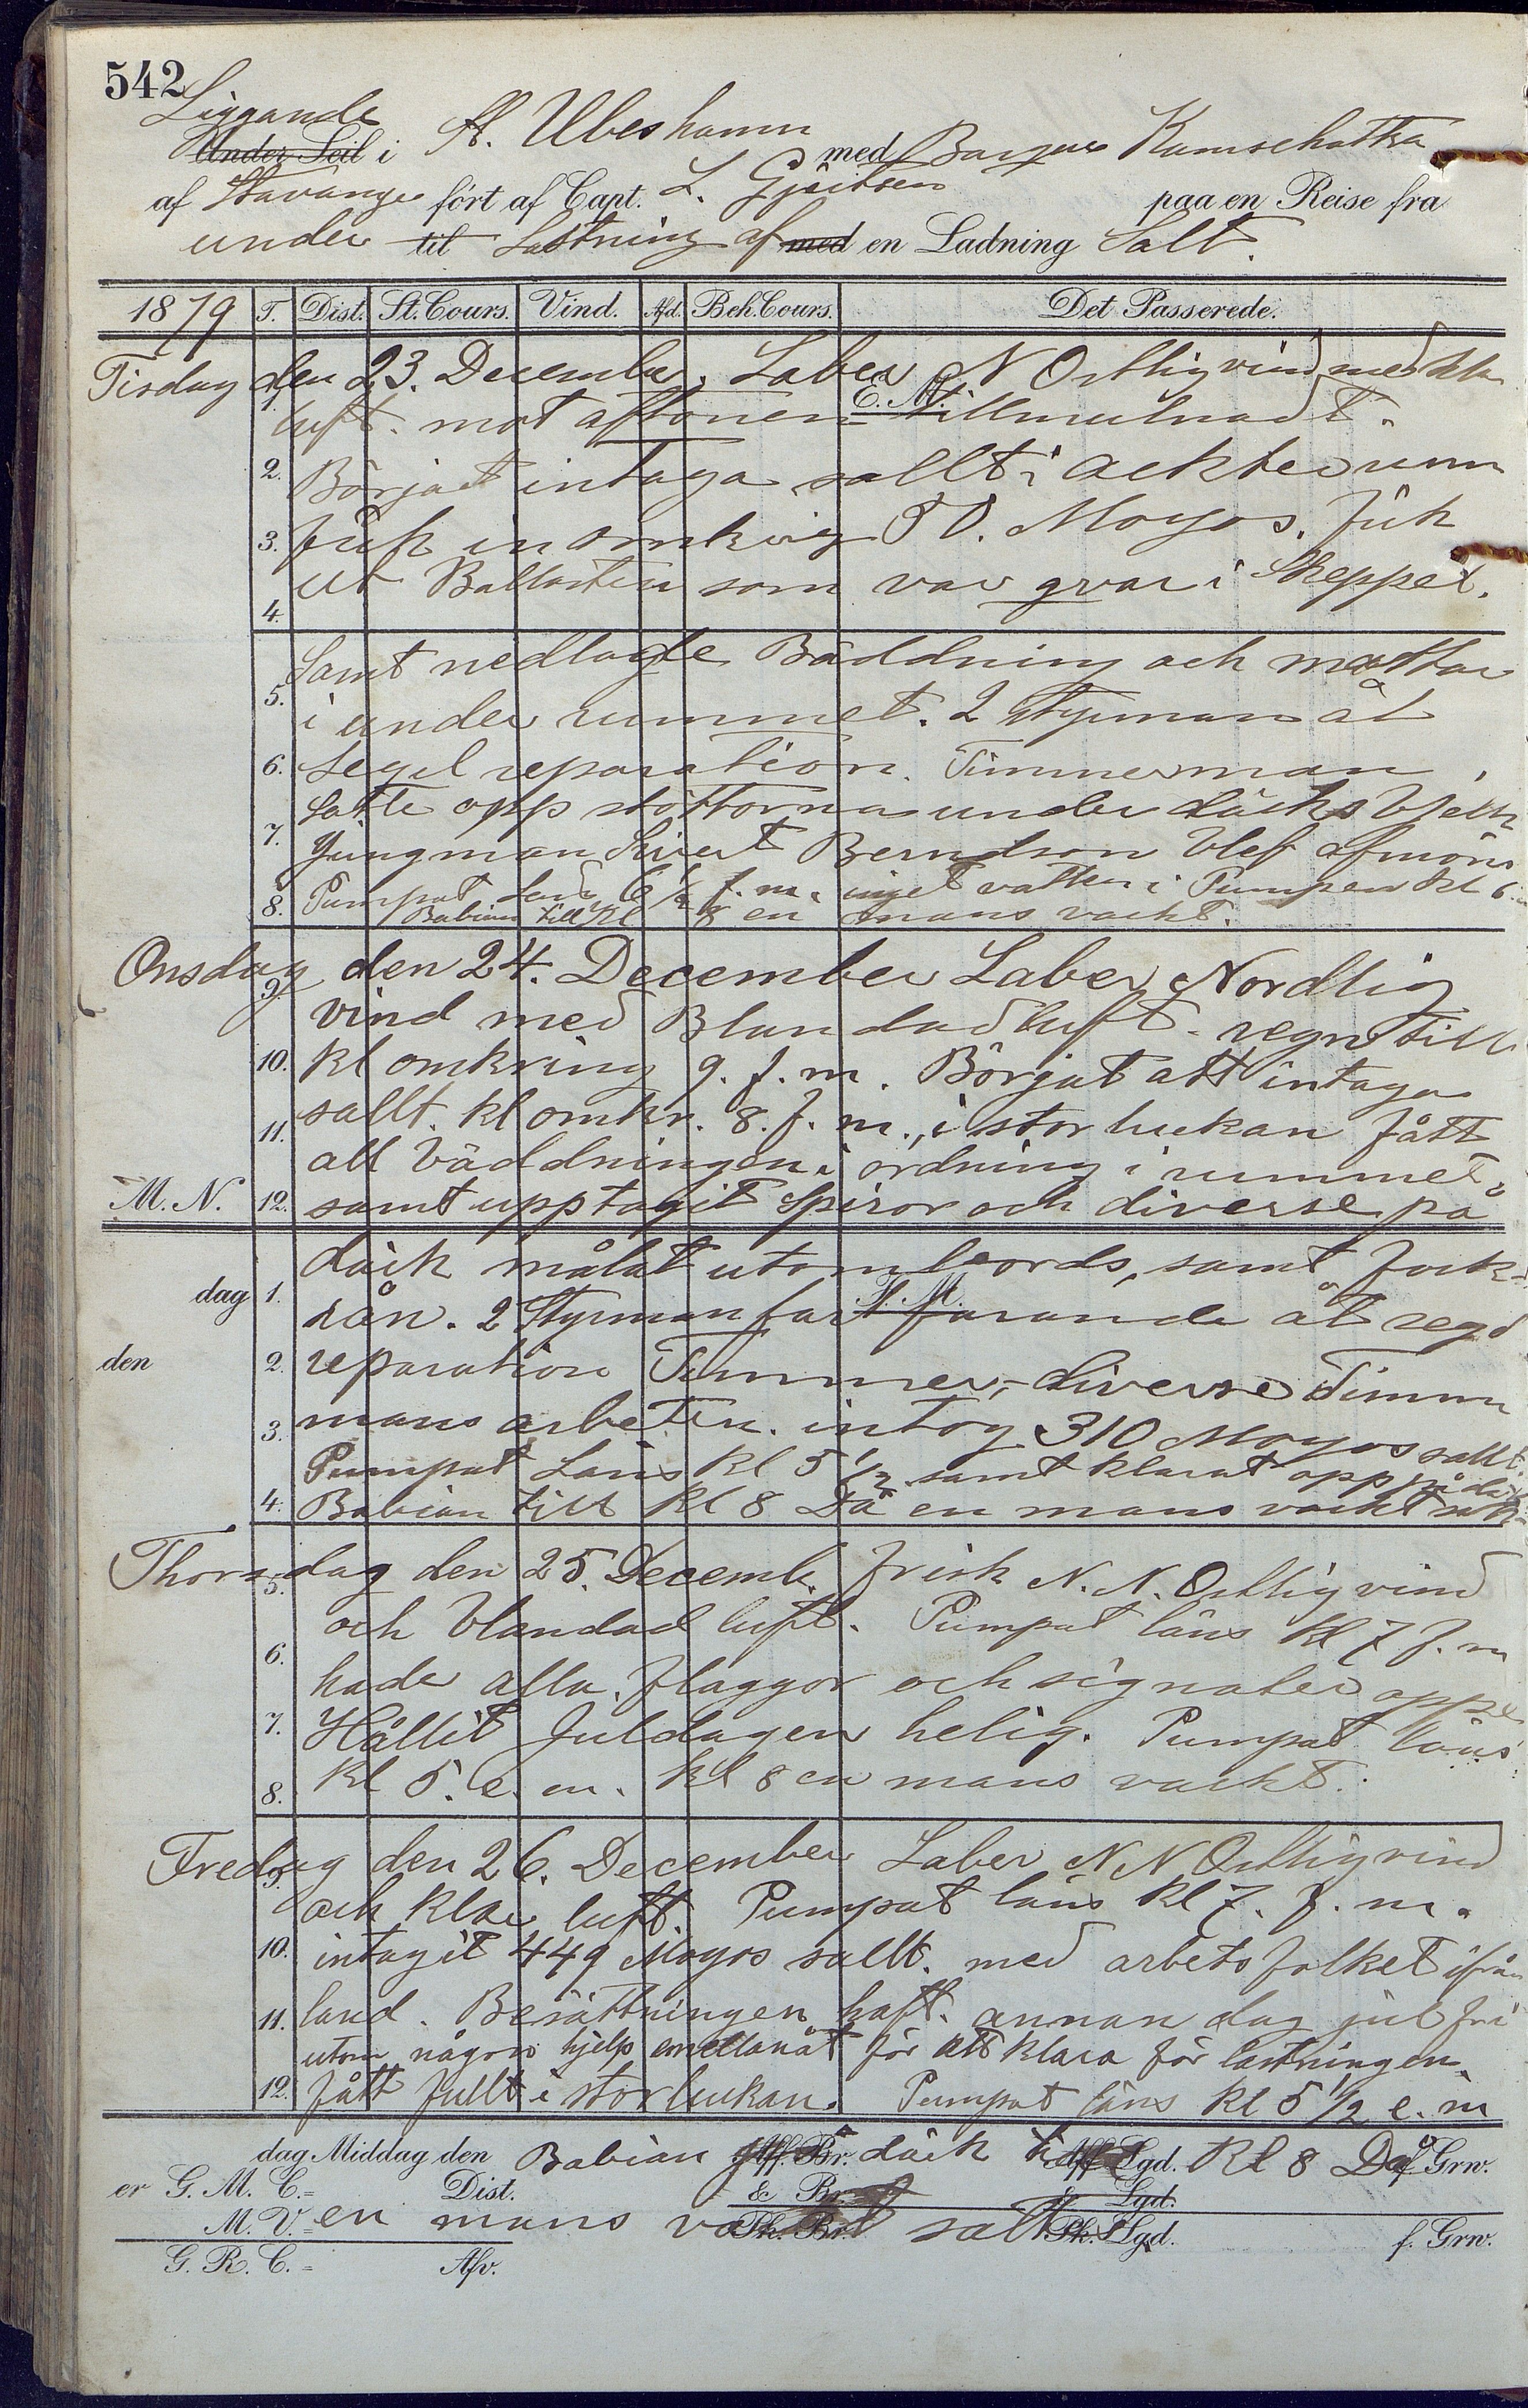 542
Liggande
Under Seil i St. Ubes hamn med Barque Kamschatka
af Stavanger fört af Capt. L. Gjöitsen paa en Reise fra
under til Lastning af med en Ladning Salt.
1879 T. Dist. St. Cours. Vind. Afd. Beh. Cours. Det Passerede.
Tisdag den 23. December. Laber N Ostlig vind med klar
1. luft. mot aftonen E. M. tillmulnadt.
2. Börjat intaga sallt i ackterrum
3. fick in omkrig 50. Moyos. fick
4. ut Ballasten som var qvar i Skeppet.
Samt nedlagte Bäddning och mattor
5. i under rummet. 2 Styrman åt
6. Segel reparation. Timmerman
Satte opp stöttorna under däcks
7. Jungman Sivert Berndson blef afmönst
8. Pumpat läns 6 1/2 f. m. inget vatten i Pumpen kl 6
Babian till kl 8 en mans vackt.
Onsdag den 24. December Laber Nordlig
9. vind med Blandad luft. regn till
10. kl omkring 9. f. m. Börjat att intaga
11. sallt. kl omkr. 8. f. m., i storluckan fått
all bäddningen i ordning i rummet,
M. N. 12. samt upptagit Spiror och diverse på
däck målat utombords, samt fock-
dag 1. rån. 2 Styrman fort F. M. farande åt segel
den 2. reparation Timmer,- diverse Timmer
3. mans arbeten. intog 310 Moyos sallt.
Pumpat Läns kl 5 1/2 samt klarat opp på däck
4. Babian till kl 8 Då en mans vackt satt
Thorsdag den 25. Decemb. frisk N. N. Ostlig vind
5. och blandad luft. Pumpat läns kl 7 f. m
6. hade alla flaggor och signaler oppe
7. Hållit Juldagen helig. Pumpat läns
8. kl 5. e. m. kl 8 en mans vackt.
Fredag den 26. December Laber N N Ostlig vind
9. och klar luft. Pumpat läns kl 7. f. m.
10. intagit 449 Moyos sallt. med arbets folket ifrån
11. land. Besättningen haft. annan dag jul fri
utom någon hjelp emellanåt för att klara för lastningen.
12. fått fullt i storluckan. Pumpat läns kl 5 1/2 e. m
dag Middag den Babian på Aff. Br. däck till Aff. Lgd. kl 8 Då f. Grw.
er G. M. C. = Dist. & Br. & Lgd.
M. V. = en mans vackt Pk. Br. satt Pk. Lgd. f. Grw.
G. R. C. = Afv.